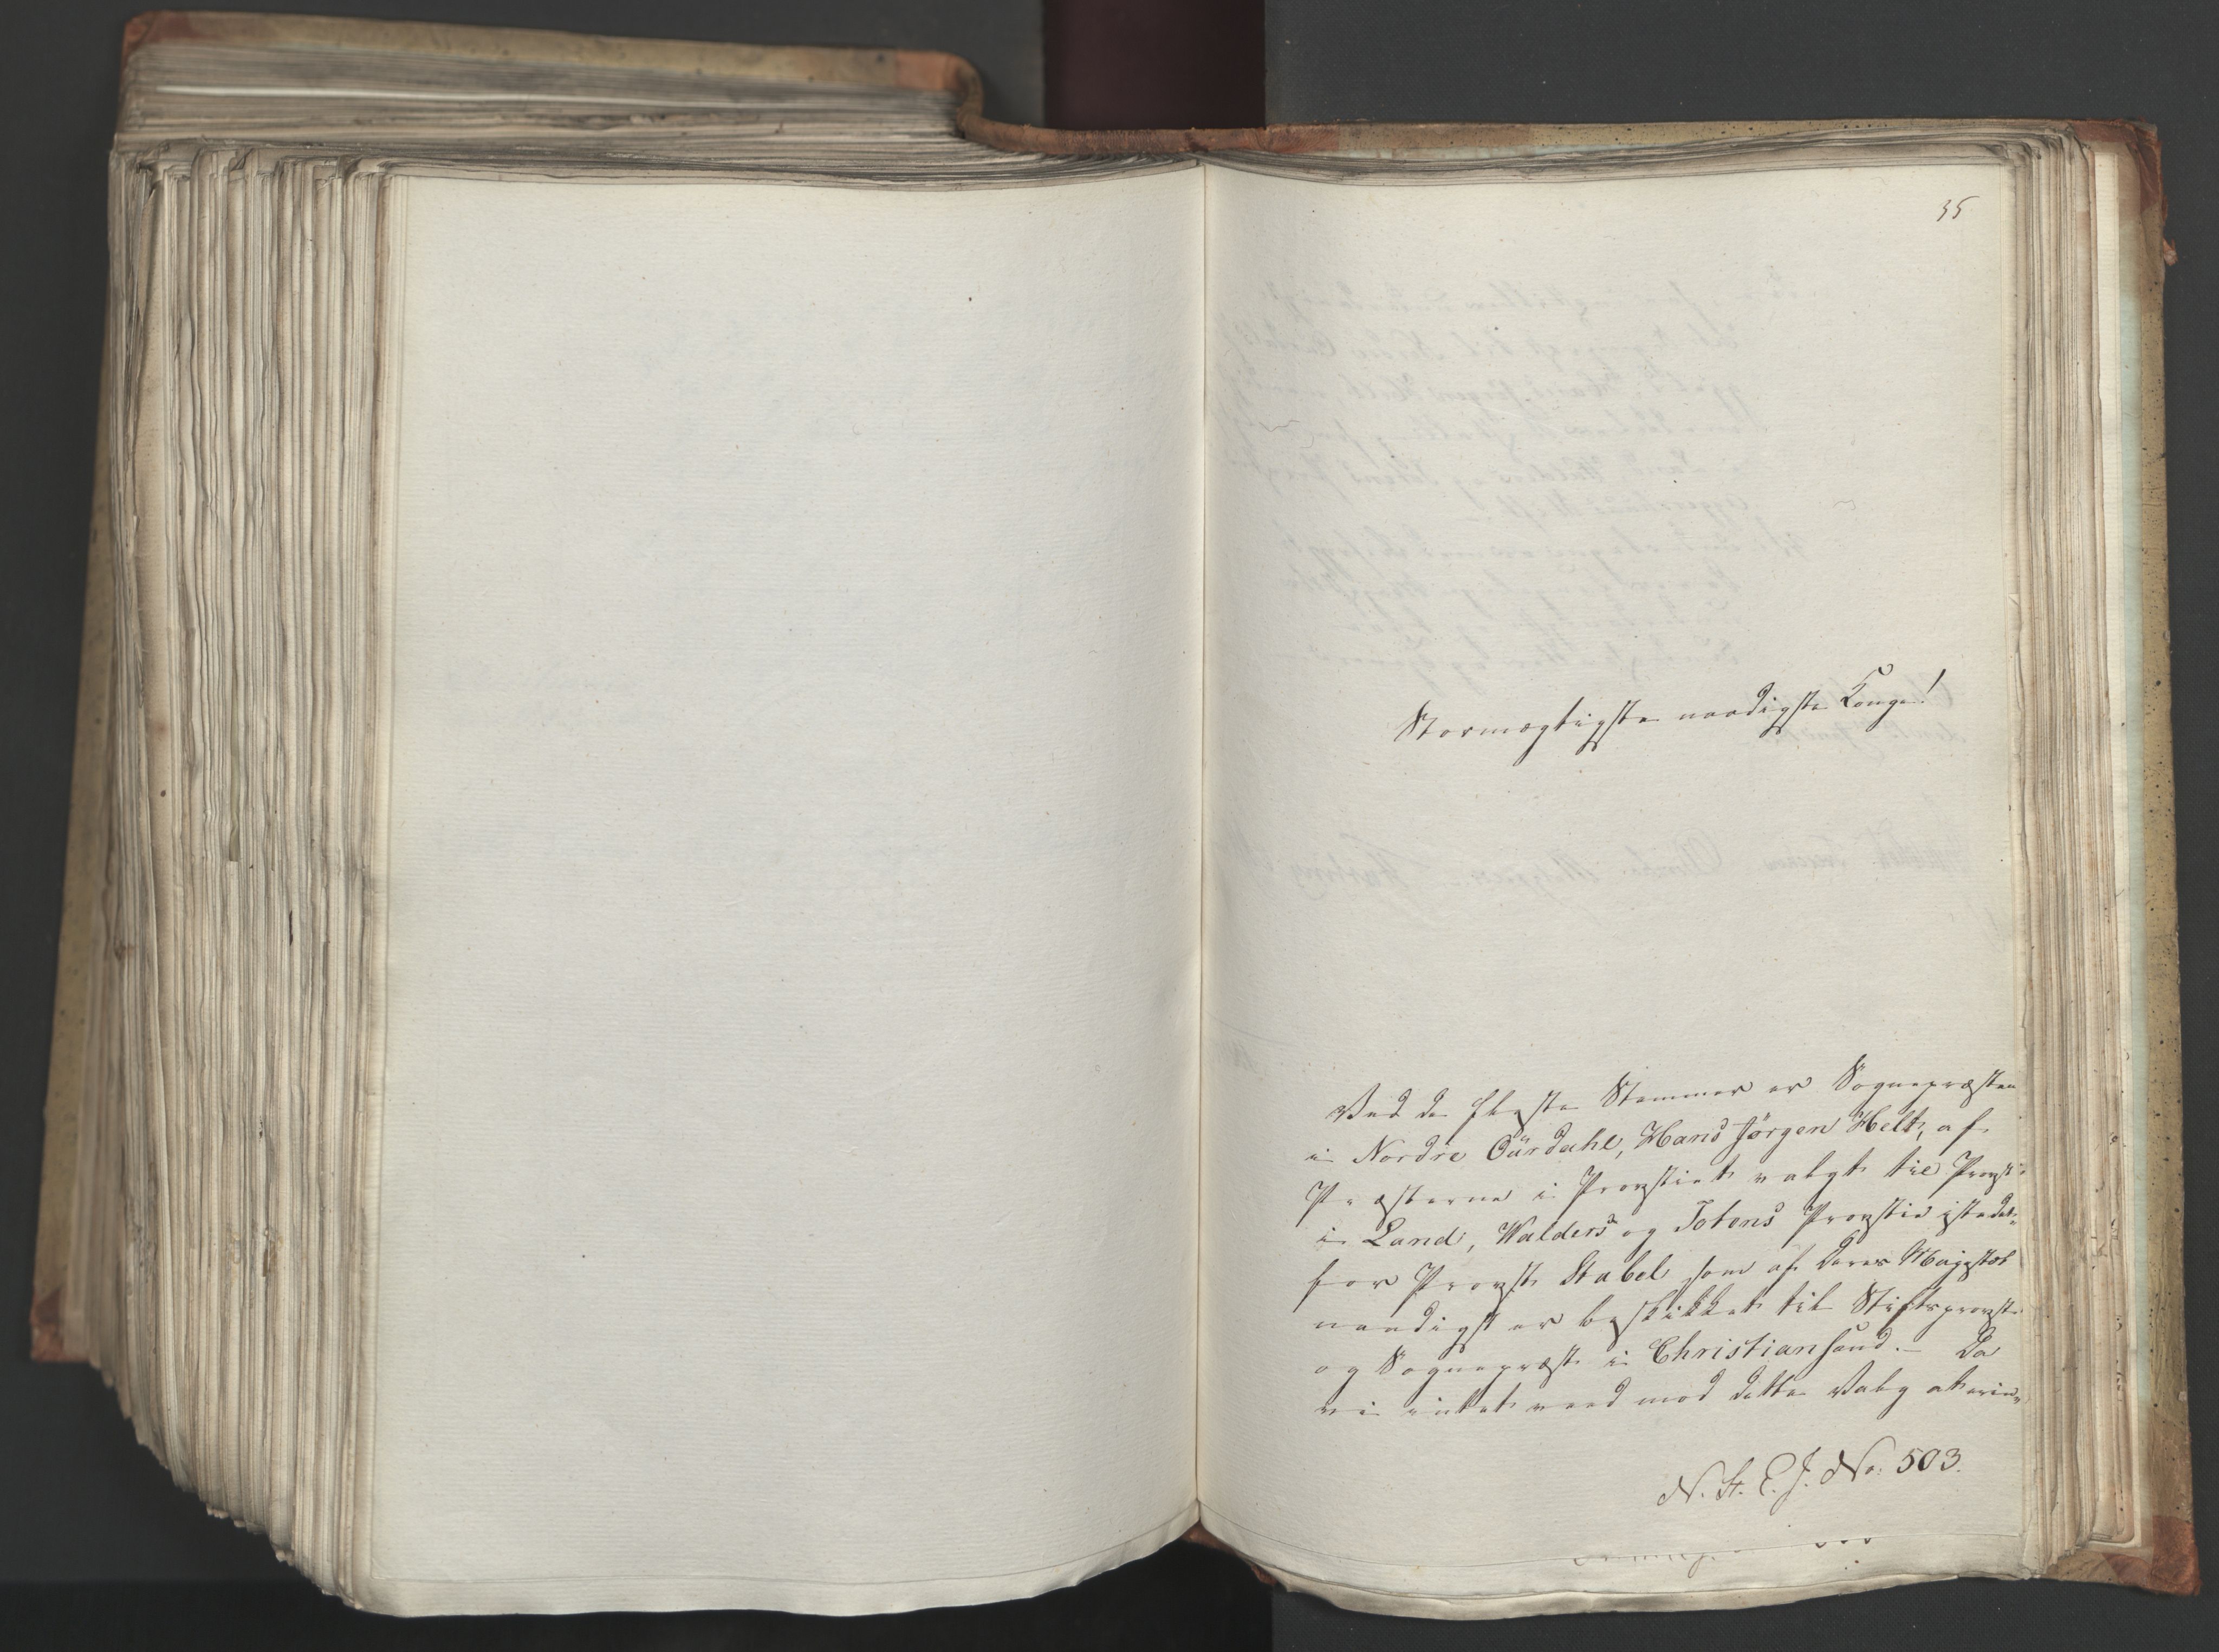 35
Stormægtigste naadigste Konge!
Ved de fleste Stemmer er Sognepræsten
i Nordre Oürdahl, Hans Jörgen Helt, af
Præsterne i Provstiet valgt til Provst
i Land, Walders og Totens Provstie istedet
for Provst Stabel som af Deres Majestæt
naadigst er beskikket til Stiftsprovst
og Sognepræst i Christiansand. – Da
vi intet veed mod dette Valg at erin„
N. St. E. J. No: 503.